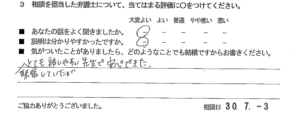 3 相談を担当した弁護士について、当てはまる評価に○をつけてください。
大変よい よい 普通 やや悪い 悪い
■ あなたの話をよく聞きましたか。
■ 説明は分かりやすかったですか。
■ 気がついたことがありましたら、どのようなことでも結構ですからお書きください。
とても話しやすい先生で安心できました。
緊張していたが
ご協力ありがとうございました。
相談日 30.7.-3